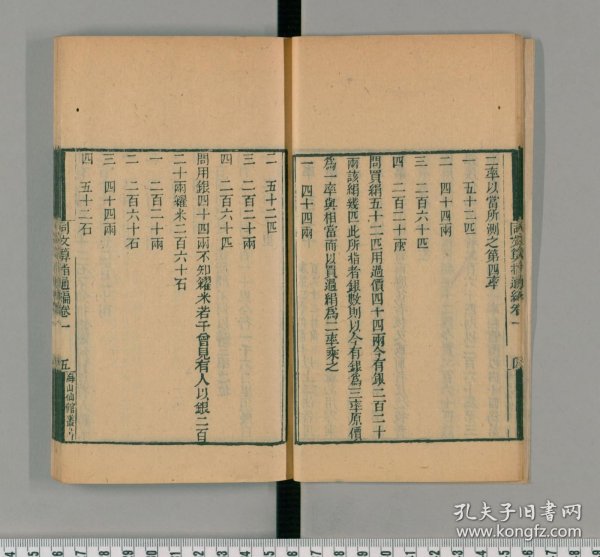 二率以當所測之第四率
一 五十二匹
二 四十四兩
三 二百六十匹
四 二百二十兩
問買絹五十二匹用過價四十四兩今有銀二百二十
兩該絹幾匹此所指者銀數則以今有銀為三率原價
為一率與相當而以買過絹為二率乘之
一 四十四兩
二 五十二匹
三 二百二十兩
四 二百六十匹
問用銀四十四兩不知糴米若干曾見有人以銀二百
二十兩糴米二百六十石
一 二百二十兩
二 二百六十石
三 四十四兩
四 五十二石
同文算指通編卷一 五
海山仙館叢書
孔夫子旧书网
www.kongfz.com